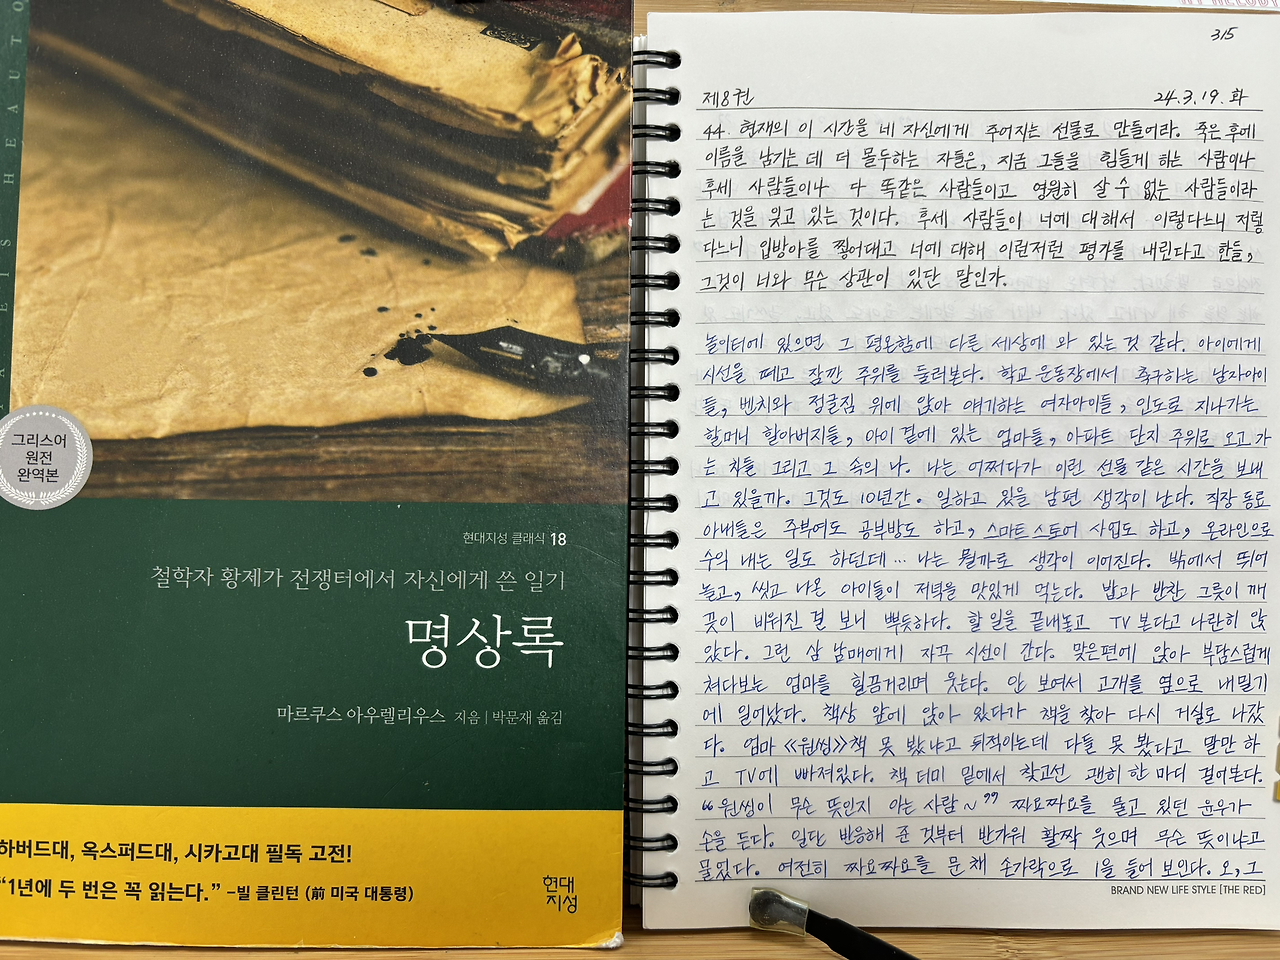 그리스어
원전
완역본
현대지성 클래식 18
철학자 황제가 전쟁터에서 자신에게 쓴 일기
명상록
마르쿠스 아우렐리우스 지음 | 박문재 옮김
하버드대, 옥스퍼드대, 시카고대 필독 고전!
“1년에 두 번은 꼭 읽는다.” –빌 클린턴 (前 미국 대통령)
현대
지성
315
제8권 24.3.19. 화
44. 현재의 이 시간을 네 자신에게 주어지는 선물로 만들어라. 죽은 후에
이름을 남기는 데 더 몰두하는 자들은, 지금 그들을 힘들게 하는 사람이나
후세 사람들이나 다 똑같은 사람들이고 영원히 살 수 없는 사람들이라
는 것을 잊고 있는 것이다. 후세 사람들이 너에 대해서 이렇다느니 저렇
다느니 입방아를 찧어대고 너에 대해 이런저런 평가를 내린다고 한들,
그것이 너와 무슨 상관이 있단 말인가.
놀이터에 있으면 그 평온함에 다른 세상에 와 있는 것 같다. 아이에게
시선을 떼고 잠깐 주위를 둘러본다. 학교 운동장에서 축구하는 남자아이
들, 벤치와 정글짐 위에 앉아 얘기하는 여자아이들, 인도로 지나가는
할머니 할아버지들, 아이 곁에 있는 엄마들, 아파트 단지 주위로 오고 가
는 차들 그리고 그 속의 나. 나는 어쩌다가 이런 선물 같은 시간을 보내
고 있을까. 그것도 10년간. 일하고 있을 남편 생각이 난다. 직장 동료
아내들은 주부여도 공부방도 하고, 스마트스토어 사업도 하고, 온라인으로
수익 내는 일도 하던데... 나는 뭘까로 생각이 이어진다. 밖에서 뛰어
놀고, 씻고 나온 아이들이 저녁을 맛있게 먹는다. 밥과 반찬 그릇이 깨
끗이 비워진 걸 보니 뿌듯하다. 할 일을 끝내놓고 TV 본다고 나란히 앉
았다. 그런 삼 남매에게 자꾸 시선이 간다. 맞은편에 앉아 부담스럽게
쳐다보는 엄마를 힐끔거리며 웃는다. 안 보여서 고개를 옆으로 내밀기
에 일어났다. 책상 앞에 앉아 있다가 책을 찾아 다시 거실로 나갔
다. 엄마 《윈씽》책 못 봤냐고 뒤적이는데 다들 못 봤다고 말만 하
고 TV에 빠져있다. 책 더미 밑에서 찾고선 괜히 한 마디 걸어본다.
“윈씽이 무슨 뜻인지 아는 사람~” 짜요짜요를 물고 있던 윤우가
손을 든다. 일단 반응해 준 것부터 반가워 활짝 웃으며 무슨 뜻이냐고
물었다. 여전히 짜요짜요를 문 채 손가락으로 1을 들어 보인다. 오, 그
BRAND NEW LIFE STYLE [THE RED]